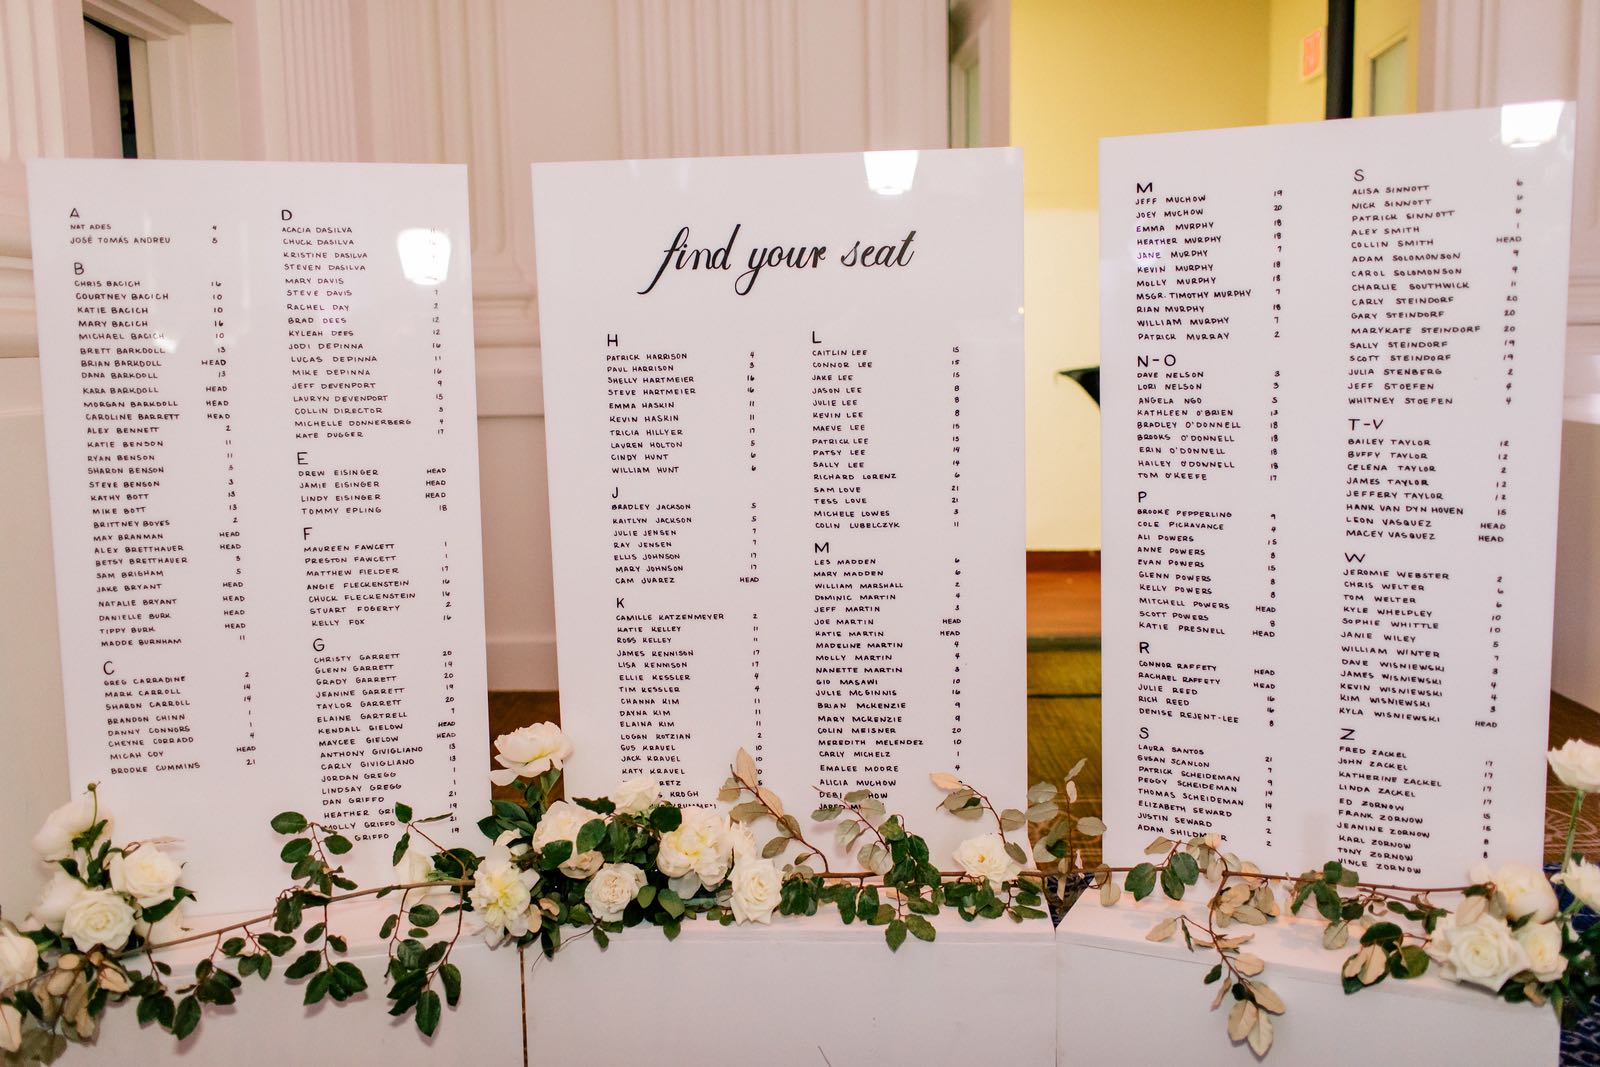 A
NAT ADES 4
JOSÉ TOMÁS ANDREU 5
B
CHRIS BACICH 16
COURTNEY BACICH 10
KATIE BACICH 10
MARY BACICH 16
MICHAEL BACICH 10
BRETT BARKDOLL 13
BRIAN BARKDOLL HEAD
DANA BARKDOLL 13
KARA BARKDOLL HEAD
MORGAN BARKDOLL HEAD
CAROLINE BARRETT HEAD
ALEX BENNETT 2
KATIE BENSON 11
RYAN BENSON 11
SHARON BENSON 3
STEVE BENSON 3
KATHY BOTT 13
MIKE BOTT 13
BRITTNEY BOYES 2
MAX BRANMAN HEAD
ALEX BRETTHAUER HEAD
BETSY BRETTHAUER 3
SAM BRIGHAM 5
JAKE BRYANT HEAD
NATALIE BRYANT HEAD
DANIELLE BURK HEAD
TIPPY BURK HEAD
MADDE BURNHAM 11
C
GREG CARRADINE 2
MARK CARROLL 14
SHARON CARROLL 14
BRANDON CHINN 1
DANNY CONNORS 1
CHEYNE CORRADO 4
MICAH COY HEAD
BROOKE CUMMINS 21
D
ACACIA DASILVA
CHUCK DASILVA
KRISTINE DASILVA
STEVEN DASILVA
MARY DAVIS
STEVE DAVIS 7
RACHEL DAY 2
BRAD DEES 12
KYLEAH DEES 12
JODI DEPINNA 16
LUCAS DEPINNA 11
MIKE DEPINNA 16
JEFF DEVENPORT 9
LAURYN DEVENPORT 15
COLLIN DIRECTOR 3
MICHELLE DONNERBERG 4
KATE DUGGER 17
E
DREW EISINGER HEAD
JAMIE EISINGER HEAD
LINDY EISINGER HEAD
TOMMY EPLING 18
F
MAUREEN FAWCETT 1
PRESTON FAWCETT 1
MATTHEW FIELDER 17
ANGIE FLECKENSTEIN 16
CHUCK FLECKENSTEIN 16
STUART FOGERTY 2
KELLY FOX 16
G
CHRISTY GARRETT 20
GLENN GARRETT 19
GRADY GARRETT 20
JEANINE GARRETT 19
TAYLOR GARRETT 20
ELAINE GARTRELL 7
KENDALL GIELOW HEAD
MAYCEE GIELOW HEAD
ANTHONY GIVIGLIANO 13
CARLY GIVIGLIANO 13
JORDAN GREGG 1
LINDSAY GREGG 1
DAN GRIFFO 21
HEATHER GRI 19
MOLLY GRIFFO 21
GRIFFO 19
find your seat
H
PATRICK HARRISON 4
PAUL HARRISON 3
SHELLY HARTMEIER 16
STEVE HARTMEIER 16
EMMA HASKIN 11
KEVIN HASKIN 11
TRICIA HILLYER 17
LAUREN HOLTON 5
CINDY HUNT 6
WILLIAM HUNT 6
J
BRADLEY JACKSON 5
KAITLYN JACKSON 5
JULIE JENSEN 7
RAY JENSEN 7
ELLIS JOHNSON 17
MARY JOHNSON 17
CAM JUAREZ HEAD
K
CAMILLE KATZENMEYER 2
KATIE KELLEY 11
ROSS KELLEY 11
JAMES KENNISON 17
LISA KENNISON 17
ELLIE KESSLER 4
TIM KESSLER 4
CHANNA KIM 11
DAYNA KIM 11
ELAINA KIM 11
LOGAN KOTZIAN 2
GUS KRAVEL 10
JACK KRAVEL 10
KATY KRAVEL 10
RETZ 5
KROGH
L
CAITLIN LEE 15
CONNOR LEE 15
JAKE LEE 15
JASON LEE 8
JULIE LEE 8
KEVIN LEE 8
MAEVE LEE 15
PATRICK LEE 15
PATSY LEE 14
SALLY LEE 14
RICHARD LORENZ 6
SAM LOVE 21
TESS LOVE 21
MICHELE LOWES 3
COLIN LUBELCZYK 11
M
LES MADDEN 6
MARY MADDEN 6
WILLIAM MARSHALL 2
DOMINIC MARTIN 4
JEFF MARTIN 3
JOE MARTIN HEAD
KATIE MARTIN HEAD
MADELINE MARTIN 4
MOLLY MARTIN 4
NANETTE MARTIN 3
GIO MASAWI 10
JULIE MCGINNIS 16
BRIAN MCKENZIE 9
MARY MCKENZIE 9
COLIN MEISNER 20
MEREDITH MELENDEZ 10
CARLY MICHELZ 1
EMALEE MOORE 4
ALICIA MUCHOW
DEBI HOW
JARED
M
JEFF MUCHOW 19
JOEY MUCHOW 20
EMMA MURPHY 18
HEATHER MURPHY 18
JANE MURPHY 7
KEVIN MURPHY 18
MOLLY MURPHY 18
MSGR. TIMOTHY MURPHY 7
RIAN MURPHY 18
WILLIAM MURPHY 7
PATRICK MURRAY 2
N-O
DAVE NELSON 3
LORI NELSON 3
ANGELA NGO 5
KATHLEEN O'BRIEN 13
BRADLEY O'DONNELL 18
BROOKS O'DONNELL 18
ERIN O'DONNELL 18
HAILEY O'DONNELL 18
TOM O'KEEFE 17
P
BROOKE PEPPERLING 9
COLE PICKAVANCE 4
ALI POWERS 15
ANNE POWERS 8
EVAN POWERS 15
GLENN POWERS 8
KELLY POWERS 8
MITCHELL POWERS HEAD
SCOTT POWERS 8
KATIE PRESNELL HEAD
R
CONNOR RAFFETY HEAD
RACHAEL RAFFETY HEAD
JULIE REED 16
RICH REED 16
DENISE REJENT-LEE 8
S
LAURA SANTOS 21
SUSAN SCANLON 7
PATRICK SCHEIDEMAN 9
PEGGY SCHEIDEMAN 14
THOMAS SCHEIDEMAN 14
ELIZABETH SEWARD 2
JUSTIN SEWARD 2
ADAM SHILDM 2
S
ALISA SINNOTT 6
NICK SINNOTT 6
PATRICK SINNOTT 6
ALEX SMITH 1
COLLIN SMITH HEAD
ADAM SOLOMONSON 9
CAROL SOLOMONSON 9
CHARLIE SOUTHWICK 11
CARLY STEINDORF 20
GARY STEINDORF 20
MARYKATE STEINDORF 20
SALLY STEINDORF 19
SCOTT STEINDORF 19
JULIA STENBERG 2
JEFF STOEFEN 4
WHITNEY STOEFEN 4
T-V
BAILEY TAYLOR 12
BUFFY TAYLOR 12
CELENA TAYLOR 2
JAMES TAYLOR 12
JEFFERY TAYLOR 12
HANK VAN DYN HOVEN 15
LEON VASQUEZ HEAD
MACEY VASQUEZ HEAD
W
JEROMIE WEBSTER 2
CHRIS WELTER 6
TOM WELTER 6
KYLE WHELPLEY 10
SOPHIE WHITTLE 10
JANIE WILEY 5
WILLIAM WINTER 7
DAVE WISNIEWSKI 3
JAMES WISNIEWSKI 4
KEVIN WISNIEWSKI 4
KIM WISNIEWSKI 3
KYLA WISNIEWSKI HEAD
Z
FRED ZACKEL 17
JOHN ZACKEL 17
KATHERINE ZACKEL 17
LINDA ZACKEL 17
ED ZORNOW 15
FRANK ZORNOW 15
JEANINE ZORNOW 8
KARL ZORNOW 8
TONY ZORNOW
VINCE ZORNOW